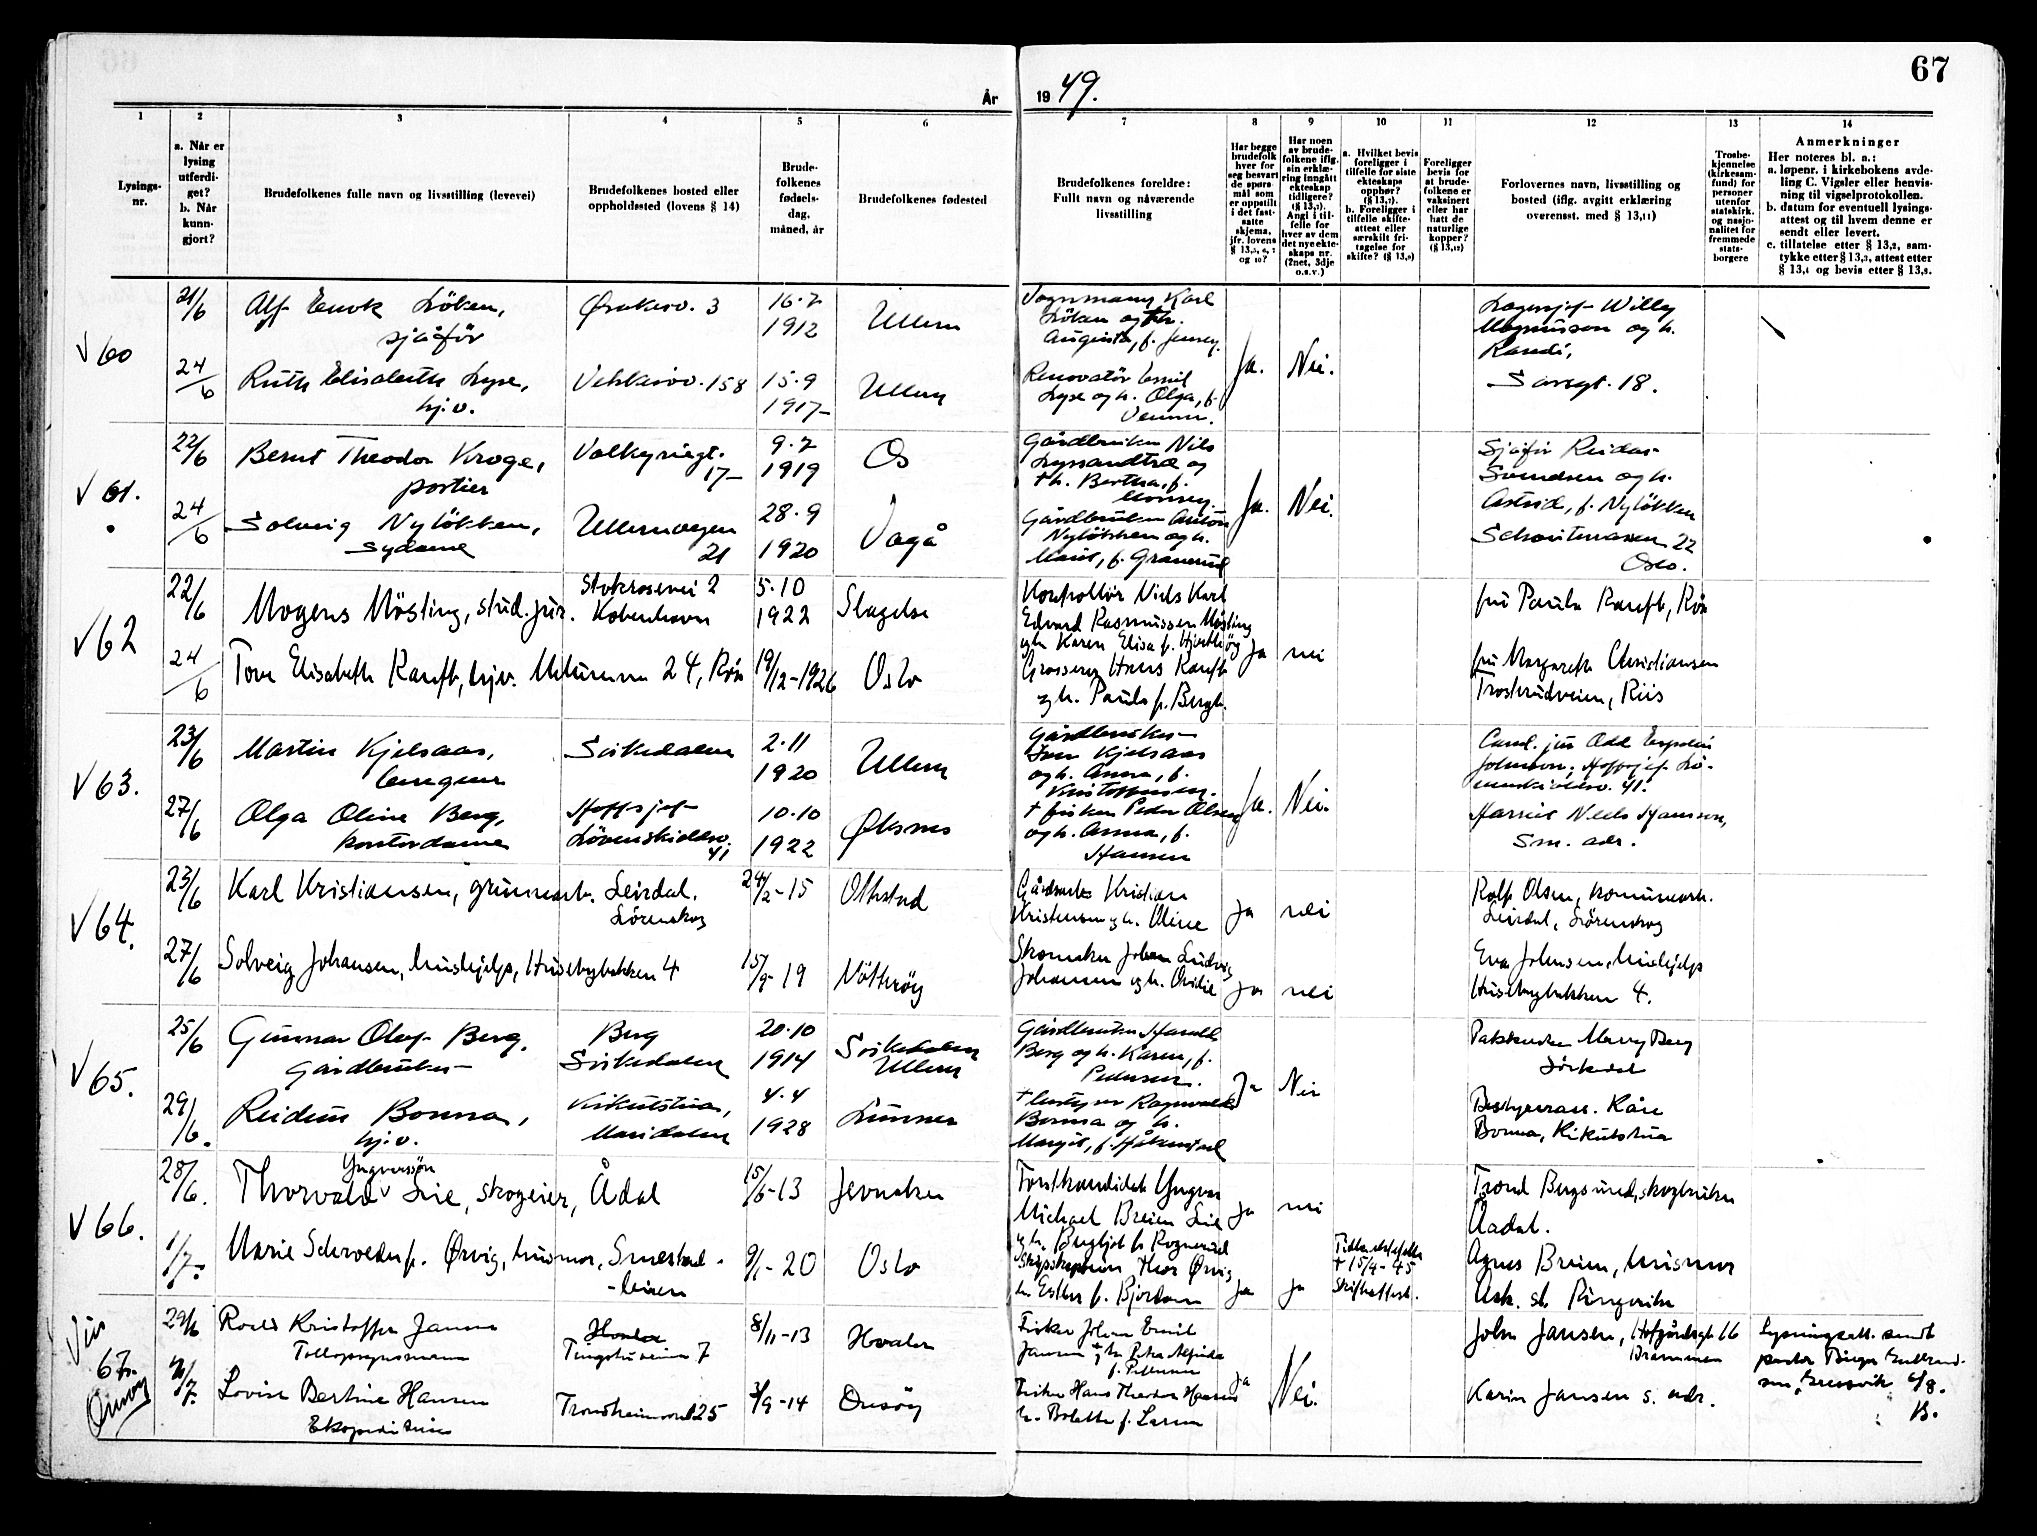 67
År
19 49.
1 2 3 4 5 6 7 8 9 10 11 12 13 14
Lysings-
nr.
a. Når er
lysing
utferdi-
get?
b. Når
kunn-
gjort?
Brudefolkenes fulle navn og livsstilling (levevei)
Brudefolkenes bosted eller
oppholdssted (lovens § 14)
Brude-
folkenes
fødsels-
dag,
måned, år
Brudefolkenes fødested
Brudefolkenes foreldre:
Fullt navn og nåværende
livsstilling
Har begge
brudefolk
hver for
seg besvart
de spørs-
mål som
er oppstilt
i det fast-
satte
skjema,
jfr. lovens
og 10?
Har noen
av brude-
folkene iflg.
sin erklæ-
ring inngått
ekteskap
tidligere?
(§ 13,7).
Angi i til-
felle for
hver av dem
det nye ekte-
skaps nr.
(2net, 3dje
o.s.v.)
a. Hvilket bevis
foreligger i
tilfelle for siste
ekteskaps
opphør?
(§ 13,7).
b. Foreligger i
tilfelle skifte-
attest eller
særskilt fri-
tagelse for
skifte? (§ 13,9)
Foreligger
bevis for
at brude-
folkene er
vaksinert
eller har
hatt de
naturlige
kopper?
(§ 13,12)
Forlovernes navn, livsstilling og
bosted (iflg. avgitt erklæring
overensst. med § 13,11)
Trosbe-
kjennelse
(kirkesam-
fund) for
personer
utenfor
statskirk.
og nasjo-
nalitet for
fremmede
stats-
borgere
Anmerkninger
Her noteres bl. a.:
a. løpenr. i kirkebokens avde-
ling C. Vigsler eller henvis-
ning til vigselprotokollen.
b. datum for eventuell lysings-
attest og til hvem denne er
sendt eller levert.
c. tillatelse etter § 13,2, sam-
tykke etter § 13,3, attest etter
§ 13,4 og bevis etter § 13,8.
V 60
21/6
Løken,
sjåfør
3
16.7
1912
Ullern
Vognmann Karl
Løken og
Augusta, f. Jensen.
Ja. Nei.
Lagersjef Willy
Magnussen og h.
Randi,
24/6
Ruth Elisabeth Lyse,
hj.v.
158
15.9
1917
Ullern
Renovatør Emil
Lyse og h. Olga, f.
18.
V 61.
22/6
Bernt Theodor Kroge,
portier
Valkyriegt.
17
9.7
1919
Os
Gårdbruker Nils
Lyssandtræ og
+ h. Bertha, f.
Monsen.
Ja. Nei.
Sjåfør Reidar
Svendsen og h.
Astrid, f. Nyløkken
22
Oslo.
24/6
Solveig Nyløkken,
sydame
Ullernvegen
21
28.9
1920
Vågå
Gårdbruker Anton
Nyløkken og h.
Marit, f. Granerud
V 62
22/6
Mogens Møsting, stud. jur.
Stokrosevei 2
København
5.10
1922
Slagelse
Kontrollør Niels Karl
Edvard Rasmussen Møsting
og h. Karen Elisa f. Hjorthøj
Ja nei
fru Paula Ranft, Røa
24/6
Tove Elisabeth Ranft, hjv.
24, Røa
19/12-1926
Oslo
Grosserer Hans Ranft
og h. Paula f. Bergh.
fru Margareth Christiansen
Trosterudveien, Riis
V 63.
23/6
Martin Kjelsaas,
Sørkedalen
2.11
1920
Ullern
Gårdbruker
Iver Kjelsaas
og h. Anna, f.
Kristoffersen.
Ja. Nei.
Cand. jur Odd
41.
27/6
Olga Oline Berg,
kontordame
Hoffsjef
Løvenskioldsv.
41
10.10
1922
Øksnes
+ fisker Peder Olsen
og h. Anna, f.
Hansen
Harriet Hansson,
Sm. adr.
V 64.
23/6
Karl Kristiansen, grunnarb.
Leirdal.
Lørenskog
24/2-15
Ottestad
Gårdsarb. Kristian
Kristensen og h. Oline
Ja nei
Rolf Olsen, kommunearb.
Leirdal, Lørenskog
27/6
Solveig Johansen, hushjelp, Husebybakken 4
15/9-19
Nøtterøy
Skomaker Johan Ludvig
Johansen og h. Ovidie
Ja nei
Eva Johnsen, hushjelp
Husebybakken 4.
V 65.
25/6
Gunnar Olaf Berg,
gårdbruker
Berg
Sørkedalen
20.10
1914
Sørkedalen
Ullern
Gårdbruker Harald
Berg og h. Karen, f.
Pedersen.
Ja Nei
Berg
Sørkedal
29/6.
Reidun Bonna,
hj.v.
Kikutstua,
Maridalen
4.4
1928
Lunner
+ bestyrer Ragnvald
Bonna og h.
Margit, f.
Kåre
Bonna, Kikutstua
V 66.
28/6.
Yngvarssøn
Thorvald Lie, skogeier,
Ådal
15/5-13
Jevnaker
Forstkandidat Yngvar
Michael Breien Lie
og h. Bergljot f. Rognerud
Ja nei
Trond Bergsund, skogbruker
Aadal.
1/7
Marie Schrøder f. Ørvig, husmor,
Smestad-
-leiren
9/1-20
Oslo
Skipskaptein Thor Ørvig
h. Esther f. Bjordam
Ja Ja
+ 15/4-45
Skifteattest.
Agnes Breien, husmor
Ask. st. Ringerike
Viet
67.
Onsøy
29/6
Roald Kristoffer Jansen
Tolloppsynsmann
Hvaler
Tingstuveien 7
8/11-13
Hvaler
Fisker Johan Emil
Jansen + og h. Petra Alfrida
f. Pettersen
Ja Nei.
John Jansen, Hofgårdsgt 16
Drammen
Lysningsatt. sendt
pastor Birger Gulbrand-
sen, Gressvik 4/8.
B.
Lovise Bertine Hansen
Ekspeditrise
Trondheimsvei 125
3/9-14
Onsøy
Fisker Hans Theodor Hansen
h. Bolette f. Larsen
Karin Jansen s. adr.